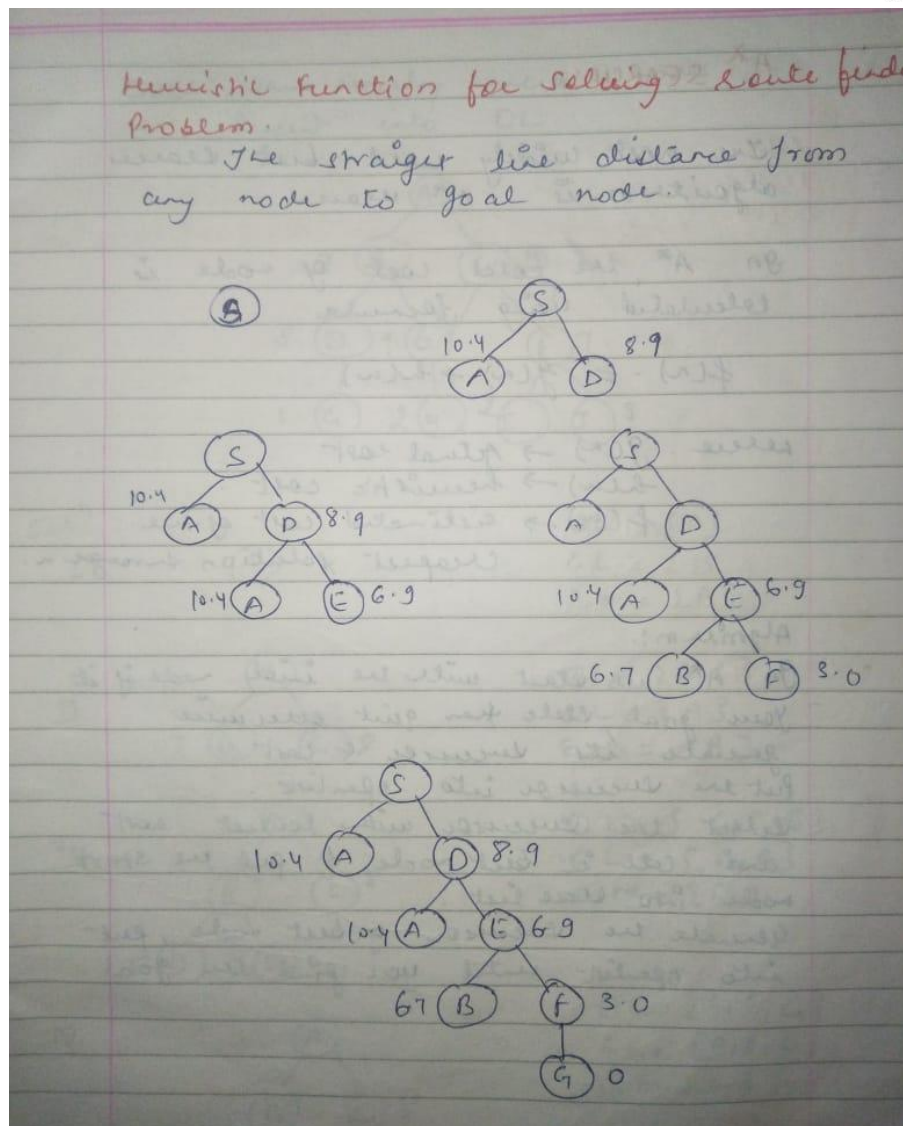 Heuristic Function for solving route find
Problem.
The straiget line distance from
any node to goal node.
S
S
10.4 8.9
A D
S S
10.4 A D 8.9 A D
10.4 A E 6.9 10.4 A E 6.9
6.7 B F 3.0
S
10.4 A D 8.9
10.4 A E 6.9
67 B F 3.0
G 0